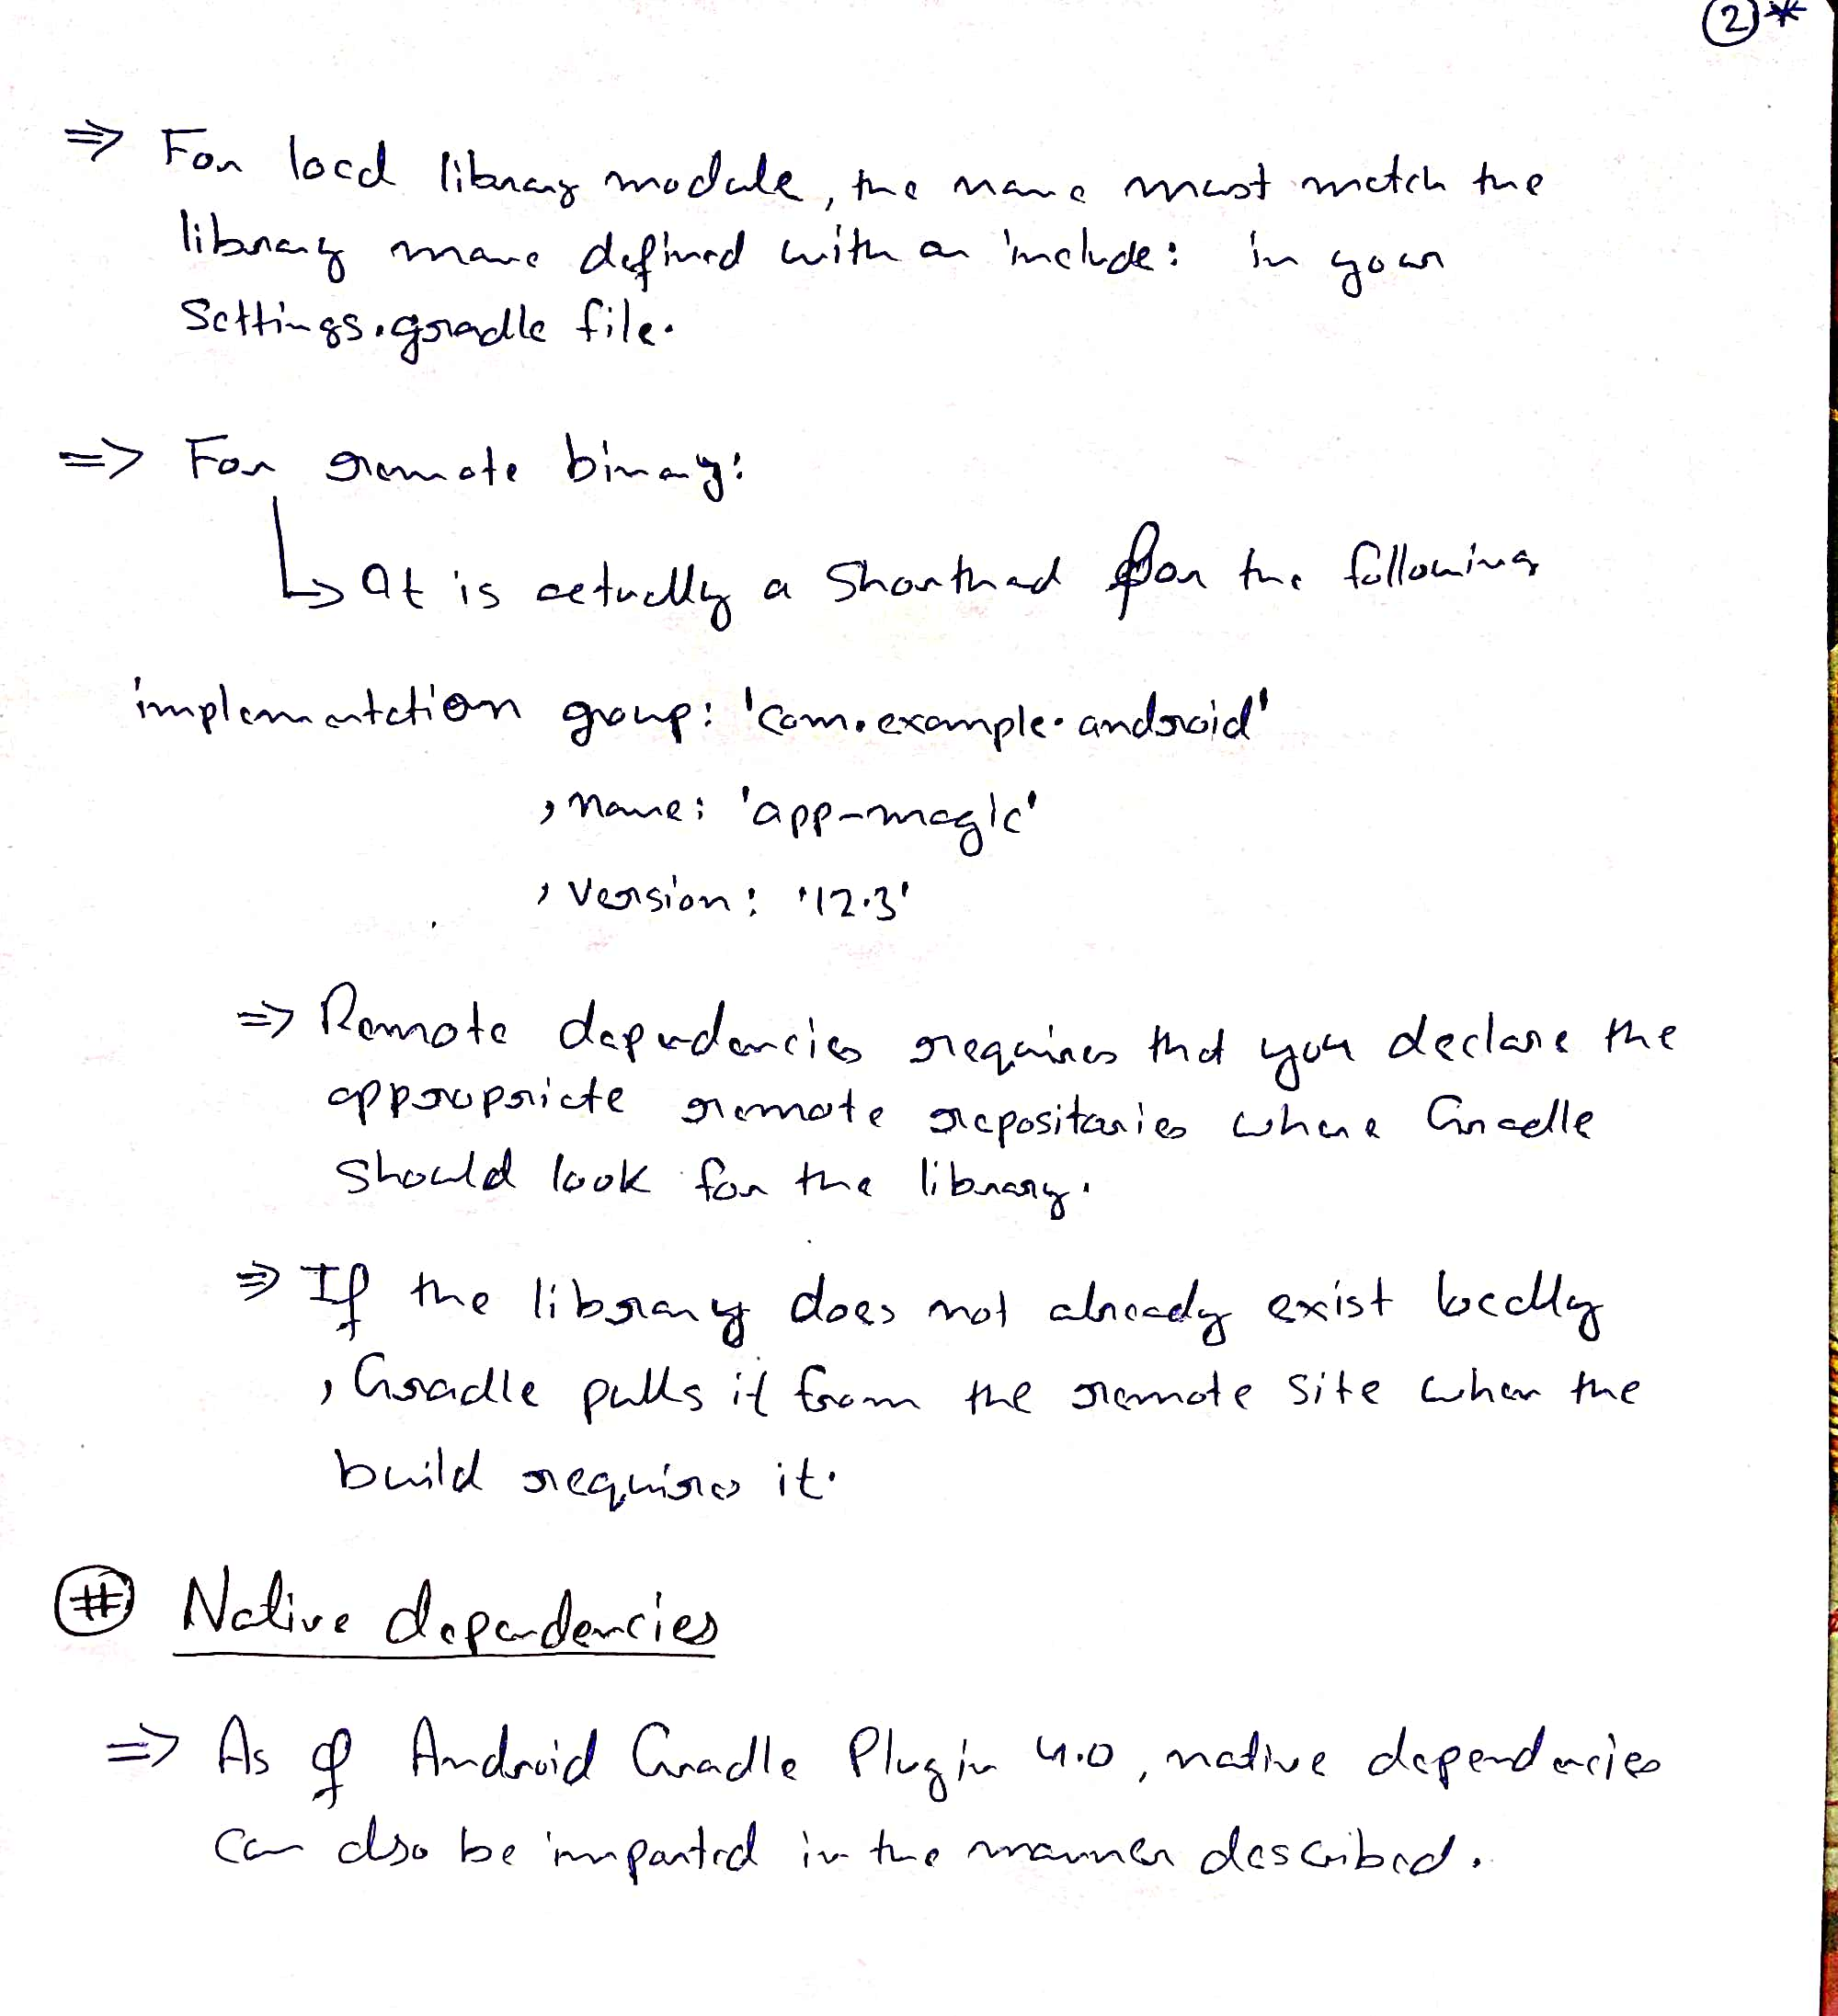 ②*
⇒ For local library module, the name must match the
library name defined with an include: in your
Settings.gradle file.
=> For remote binary:
↳ It is actually a Shorthand for the following
implementation group: 'com.example.android'
, name: 'app-magic'
, version: '12.3'
=> Remote dependencies requires that you declare the
appropriate remote repositories where Gradle
should look for the library.
⇒ If the library does not already exist locally
, Gradle pulls it from the remote site when the
build requires it.
# Native dependencies
=> As of Android Gradle Plugin 4.0, native dependencies
can also be imported in the manner described.